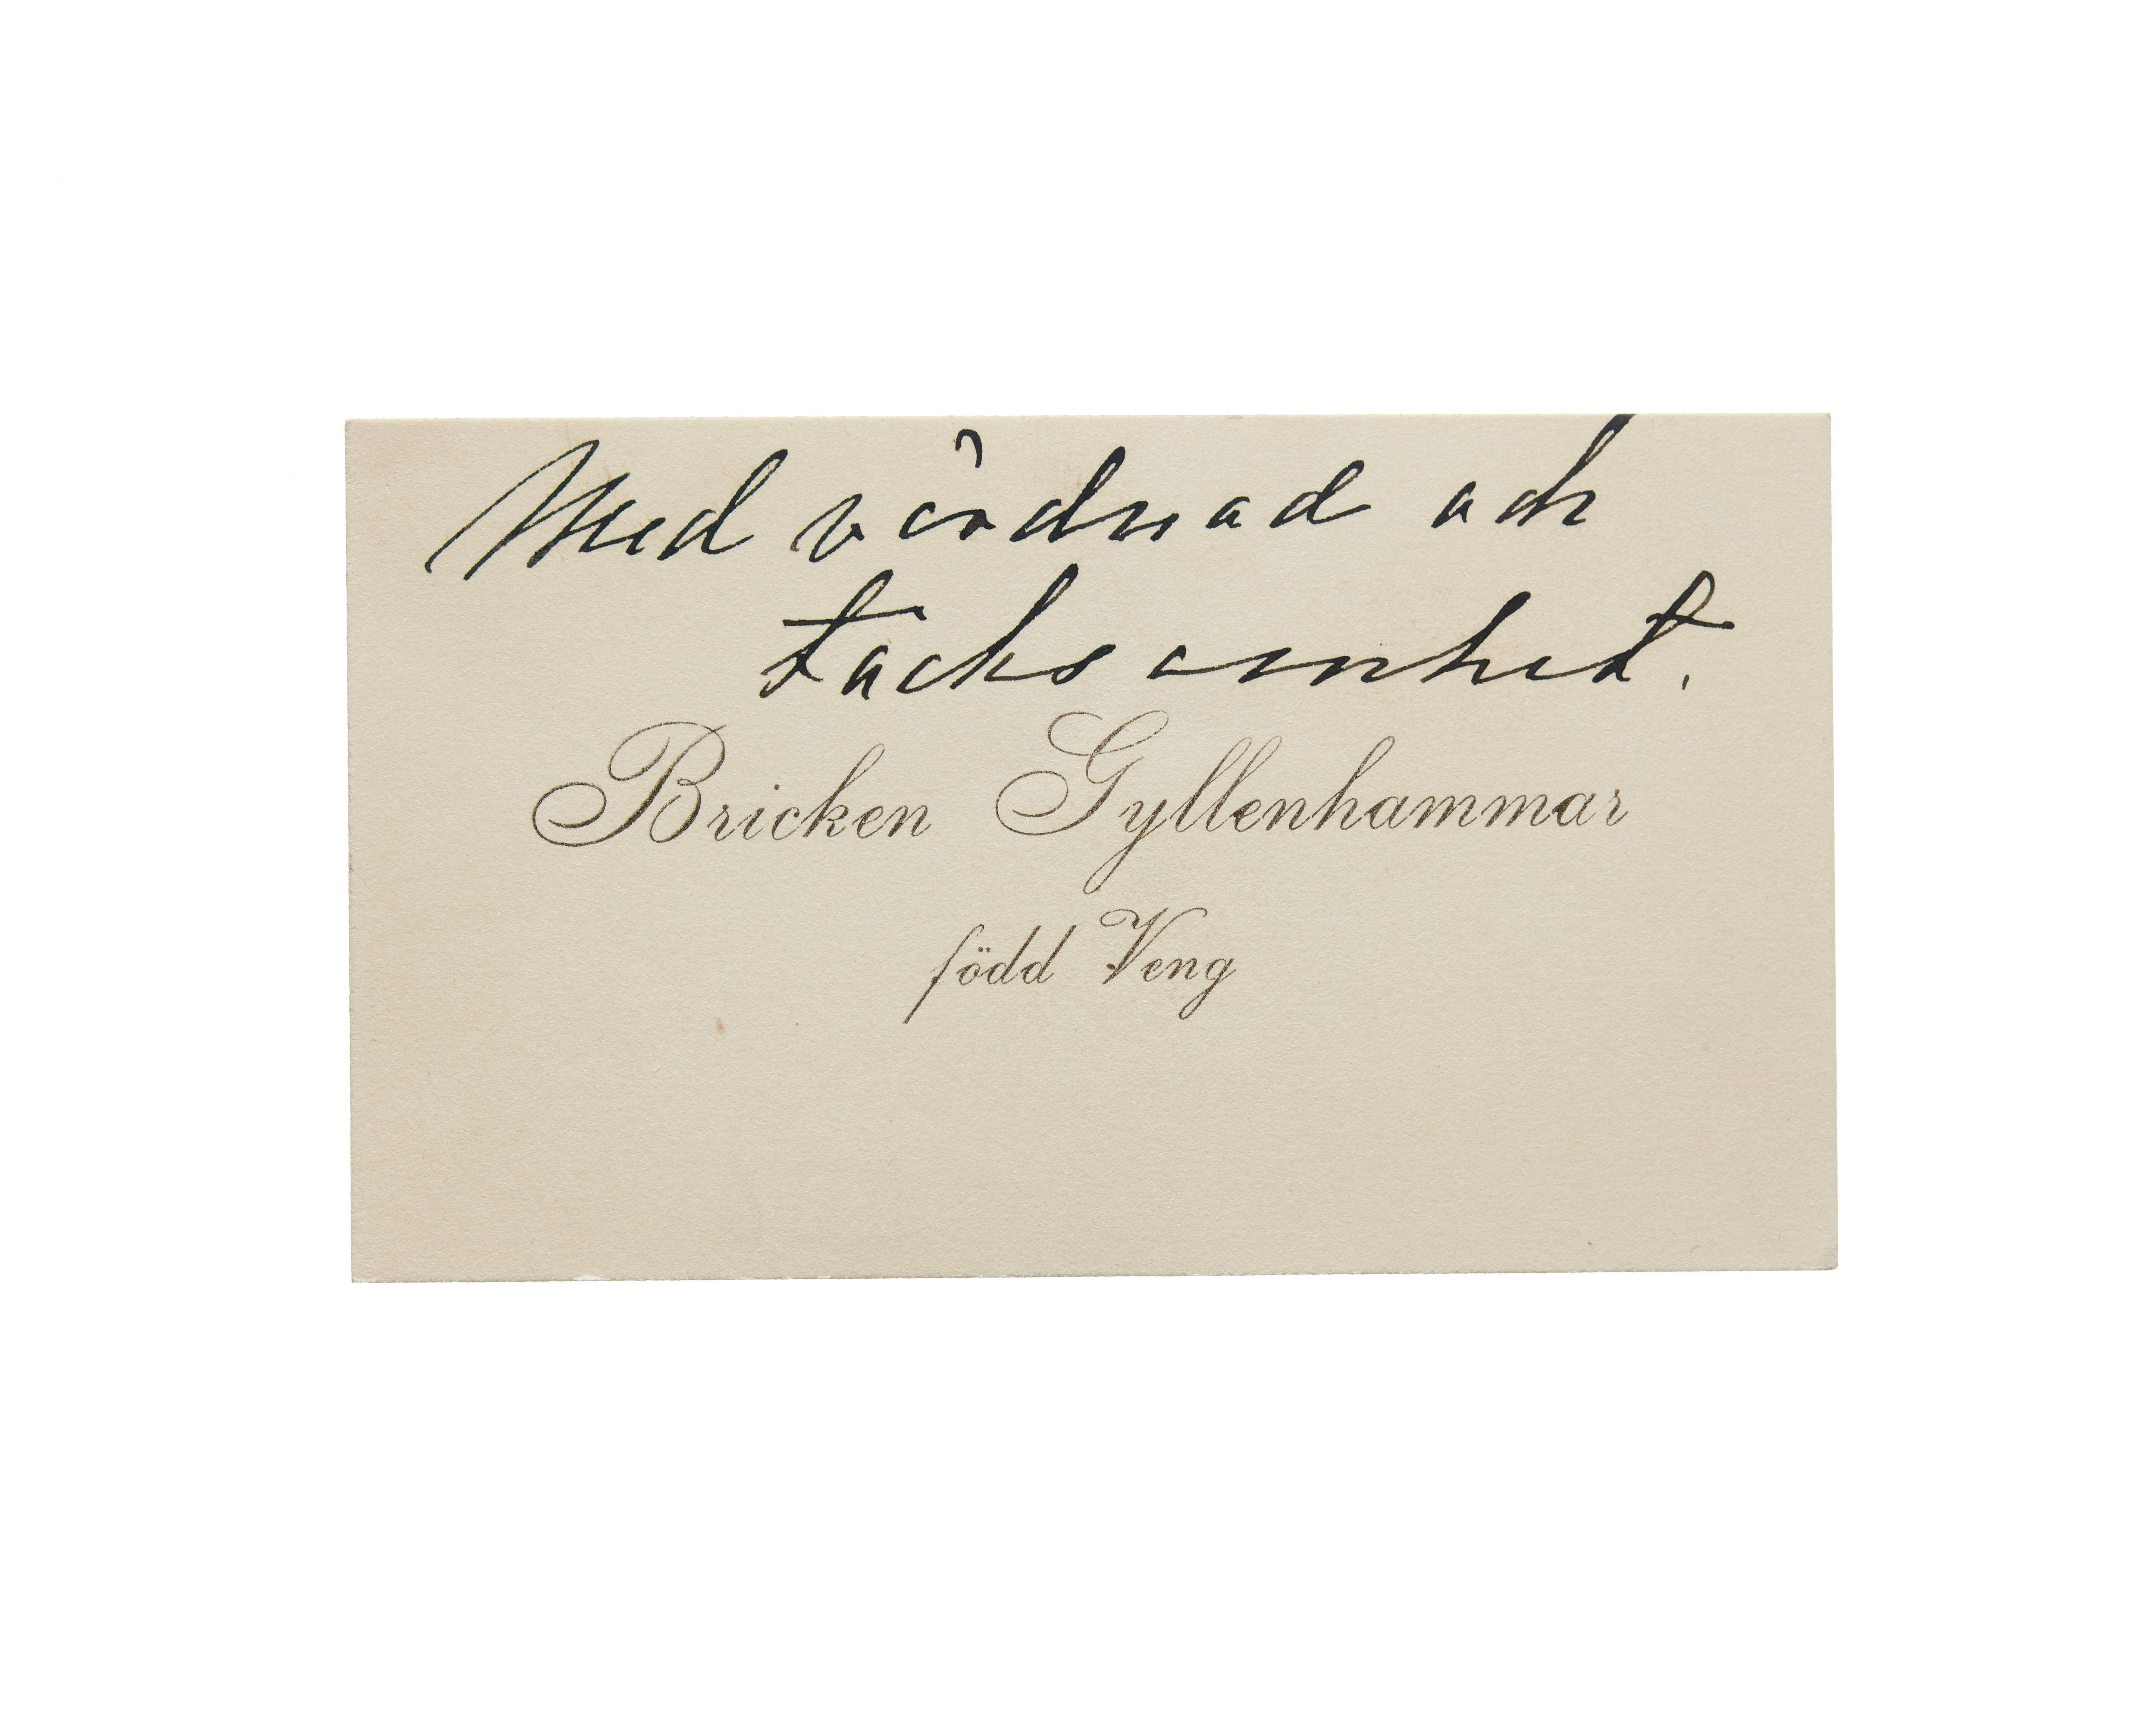 Med vördnad och
tacksamhet.
Bricken Gyllenhammar
född Veng